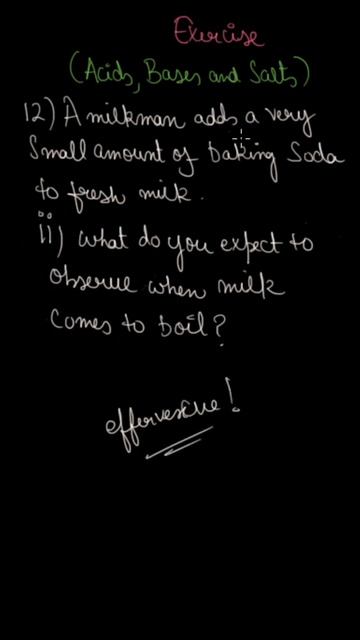 Exercise
(Acids, Bases and Salts)
12) A milkman adds a very
small amount of baking Soda
to fresh milk.
ii) what do you expect to
observe when milk
comes to boil?
effervescence!